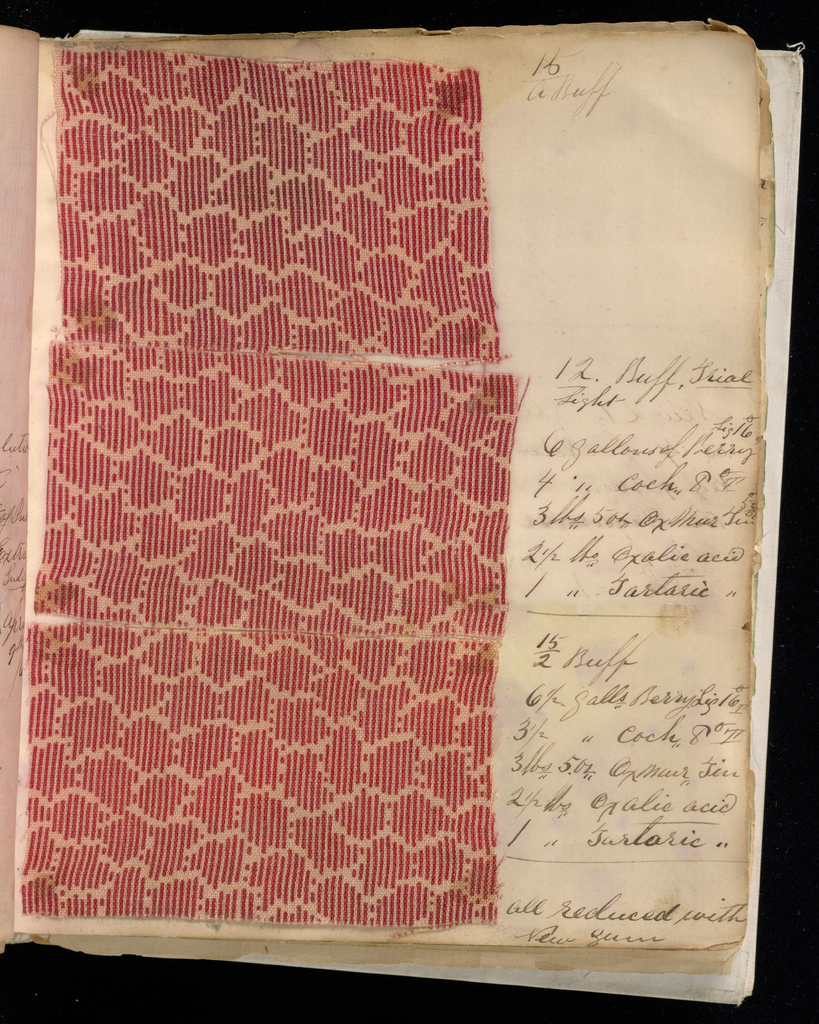 15
a Buff
12. Buff, Trial
Light
6 gallons of Berry Liq 16°
4 " Coch,, 8° T
3 lbs 5 oz Ox Mur Tin
2½ lbs Oxalic acid
1 " Tartaric "
15
2 Buff
6½ galls Berry Liq 16° T
3½ " Coch,, 8° T
3 lbs 5 oz,, Ox Mur Tin
2½ lbs Oxalic acid
1 " Tartaric "
all reduced with
New gum